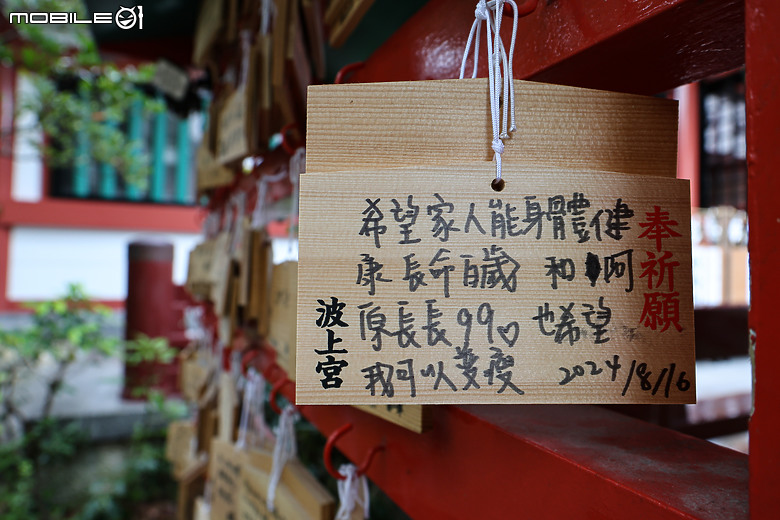 MOBILE01
希望家人能身體健
康長命百歲 和阿
原長長99♡ 也希望
我可以變瘦
2024/8/16
奉祈願
波上宮